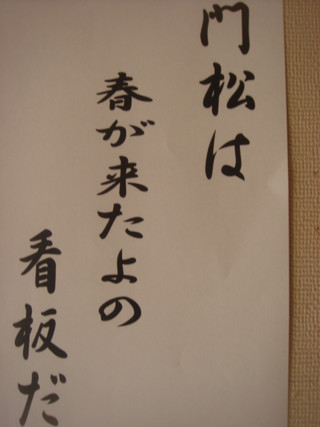 門松は
春が来たよの
看板だ